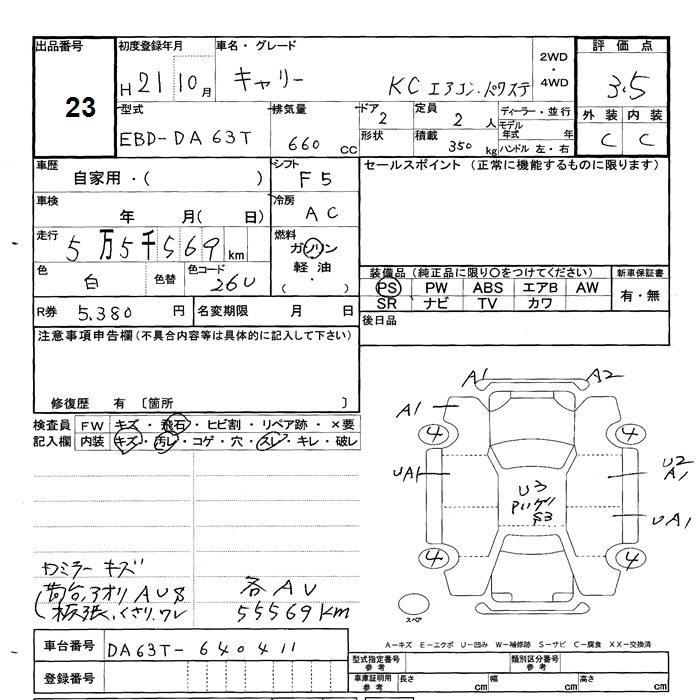 出品番号 初度登録年月 車名・グレード 評価点
23
H 21 10月 キャリー KC エアコン・パワステ 2WD・4WD 3.5
型式 排気量 ドア 2 定員 2 人 ディーラー・並行 外装 内装
EBD-DA63T 660 cc 形状 積載 350 kg モデル年式 年 C C
ハンドル 左・右
車歴 シフト セールスポイント (正常に機能するものに限ります)
自家用・( ) F5
車検 冷房
年 月( 日) AC
走行 5万5千569 km 燃料 ガソリン
軽油・( )
色 白 色替 色コード 26U
装備品(純正品に限り〇をつけてください) 新車保証書
PS PW ABS エアB AW 有・無
SR ナビ TV カワ
R券 5,380 円 名変期限 月 日 後日品
注意事項申告欄(不具合内容等は具体的に記入して下さい)
修復歴 有 〔箇所 〕
検査員 FW キズ・飛石・ヒビ割・リペア跡・×要
記入欄 内装 キズ・汚レ・コゲ・穴・スレ・キレ・破レ
A1 A2
A1
4 4
UA1 U2
A1
U3
S3
UA1
4 4
スペア
ミラーキズ
荷台,アオリ AU8 各AU
板張,くさり,ワレ 55569km
A-キズ E-エクボ U-凹み W-補修跡 S-サビ C-腐食 XX-交換済
車台番号 DA63T-640411
登録番号
型式指定番号 参考 類別区分番号 参考
車庫証明用 参考 長さ cm 幅 cm 高さ cm